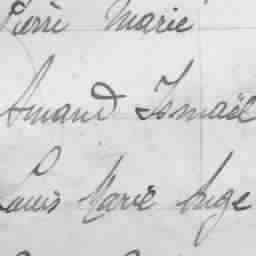 Pierre Marie
Amand Ismaël
Louis Marie Ange